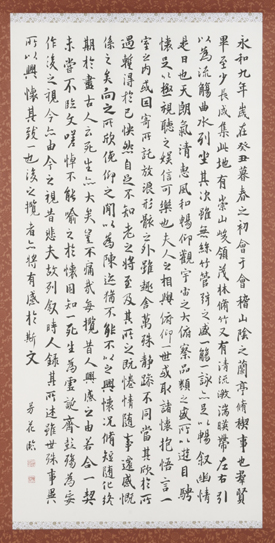 永和九年歲在癸丑暮春之初會于會稽山陰之蘭亭脩稧事也羣賢
畢至少長咸集此地有崇山峻領茂林脩竹又有清流激湍暎帶左右引
以為流觴曲水列坐其次雖無絲竹管弦之盛一觴一詠亦足以暢叙幽情
是日也天朗氣清惠風和暢仰觀宇宙之大俯察品類之盛所以遊目騁
懷足以極視聽之娛信可樂也夫人之相與俯仰一世或取諸懷抱悟言一
室之內或因寄所託放浪形骸之外雖趣舍萬殊靜躁不同當其欣於所
遇暫得於己怏然自足不知老之將至及其所之既惓情隨事遷感慨
係之矣向之所欣俛仰之閒以為陳迹猶不能不以之興懷況脩短隨化終
期於盡古人云死生亦大矣豈不痛哉每攬昔人興感之由若合一契
未嘗不臨文嗟悼不能喻之於懷固知一死生為虛誕齊彭殤為妄
作後之視今亦由今之視昔悲夫故列叙時人錄其所述雖世殊事異
所以興懷其致一也後之攬者亦將有感於斯文
芳花臨